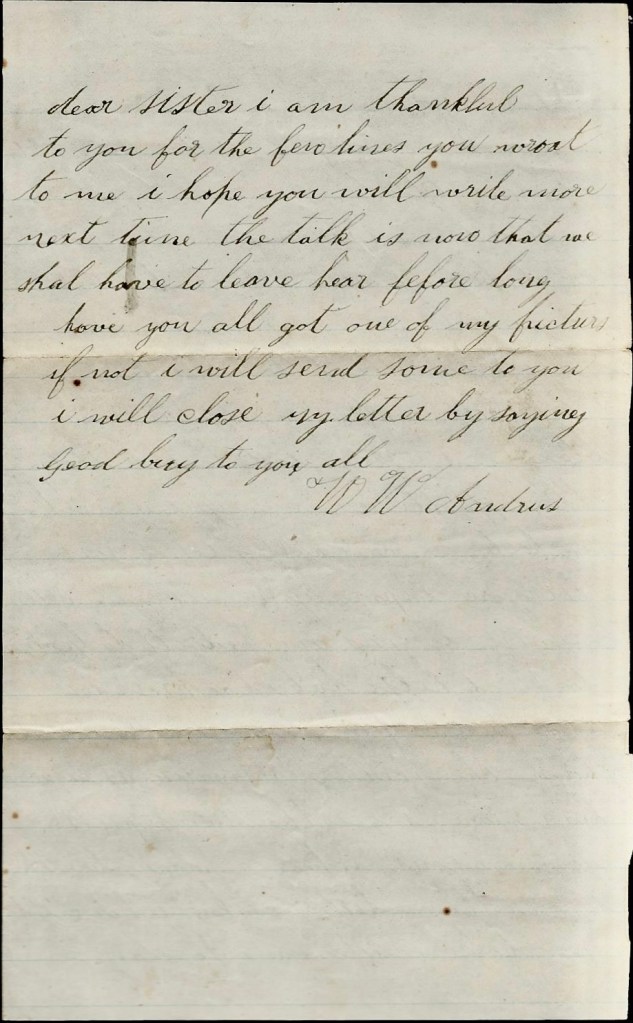 dear sister i am thankful
to you for the few lines you wroat
to me i hope you will write more
next time the talk is now that we
shal have to leave hear before long
have you all got one of my picturs
if not i will send some to you
i will close my letter by saying
good buy to you all
W W Andrus